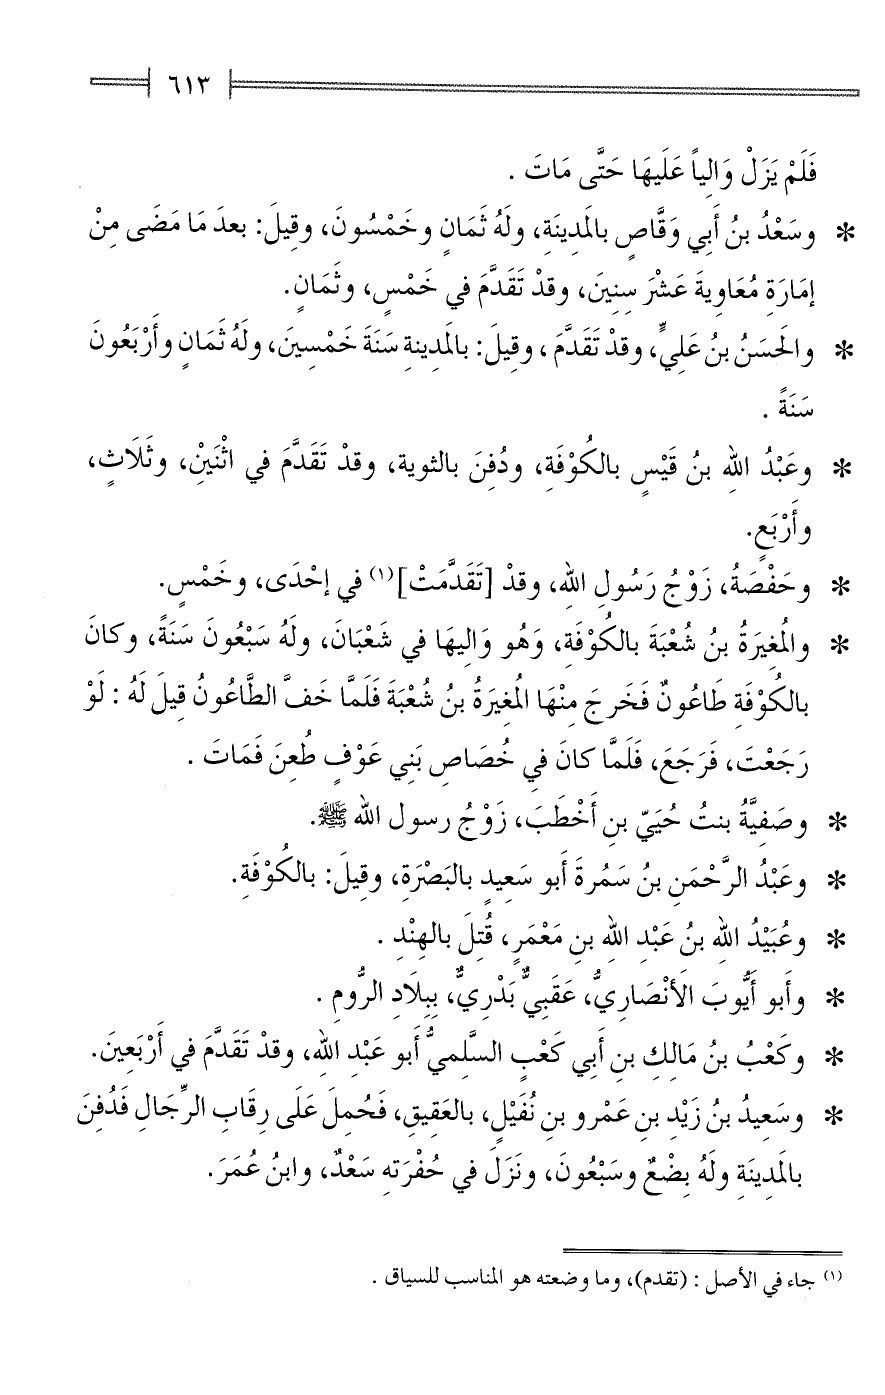 ٦١٣
فَلَمْ يَزَلْ وَالِياً عَلَيهَا حَتَّى مَاتَ .
* وسَعْدُ بنُ أَبي وَقَّاصٍ بالمَدِينَةِ، ولَهُ ثَمَانٍ وخَمْسُونَ، وقِيلَ: بعدَ مَا مَضَى مِنْ
إمَارَةِ مُعَاوِيةَ عَشْرَ سِنِينَ، وقدْ تَقَدَّمَ في خَمْسٍ، وثَمَانٍ.
* والحَسَنُ بنُ عَليٍّ، وقدْ تَقَدَّمَ ، وقِيلَ: بالمَدينةِ سَنَةَ خَمْسينَ، ولَهُ ثَمَانٍ وأَرْبَعُونَ
سَنَةً .
* وعَبْدُ اللهِ بنُ قَيْسٍ بالكُوْفَةِ، ودُفِنَ بالثوية، وقدْ تَقَدَّمَ في اثْنَيْنِ، وثَلَاثٍ،
وأَرْبَعٍ.
* وحَفْصَةُ، زَوْجُ رَسُولِ اللهِ، وقدْ [تَقَدَّمَتْ](١) في إحْدَى، وخَمْسٍ.
* والمُغِيرَةُ بنُ شُعْبَةَ بالكُوْفَةِ، وَهُو وَالِيهَا في شَعْبَانَ، ولَهُ سَبْعُونَ سَنَةً، وكانَ
بالكُوْفَةِ طَاعُونٌ فَخَرجَ مِنْهَا المُغِيرَةُ بنُ شُعْبَةَ فَلَمَّا خَفَّ الطَّاعُونُ قِيلَ لَهُ : لَوْ
رَجَعْتَ، فَرَجَعَ، فَلَمَّا كانَ في خُصَاصِ بَنِي عَوْفٍ طُعِنَ فَمَاتَ .
* وصَفِيَّةُ بنتُ حُيَيّ بنِ أَخْطَبَ، زَوْجُ رسولِ اللهِ ﷺ.
* وعَبْدُ الرَّحْمَنِ بنُ سَمُرةَ أَبو سَعِيدٍ بالبَصْرَةِ، وقِيلَ: بالكُوْفَةِ.
* وعُبَيْدُ اللهِ بنُ عَبْدِ اللهِ بنِ مَعْمَرٍ، قُتِلَ بالهِنْدِ .
* وأَبو أَيُّوبَ الأَنْصَاريُّ، عَقَبيٌّ بَدْريٌّ، بِبِلَادِ الرُّومِ .
* وكَعْبُ بنُ مَالكِ بنِ أَبي كَعْبٍ السَّلَميُّ أَبو عَبْدِ اللهِ، وقدْ تَقَدَّمَ في أَرْبَعينَ.
* وسَعِيدُ بنُ زَيْدِ بنِ عَمْرو بنِ نُفَيْلٍ، بالعَقِيقِ، فَحُمِلَ عَلَى رِقَابِ الرِّجَالِ فَدُفِنَ
بالمَدِينَةِ ولَهُ بِضْعٌ وسَبْعُونَ، ونَزَلَ في حُفْرَتهِ سَعْدٌ، وابنُ عُمَرَ.
(١) جاء في الأصل : (تقدم)، وما وضعته هو المناسب للسياق .